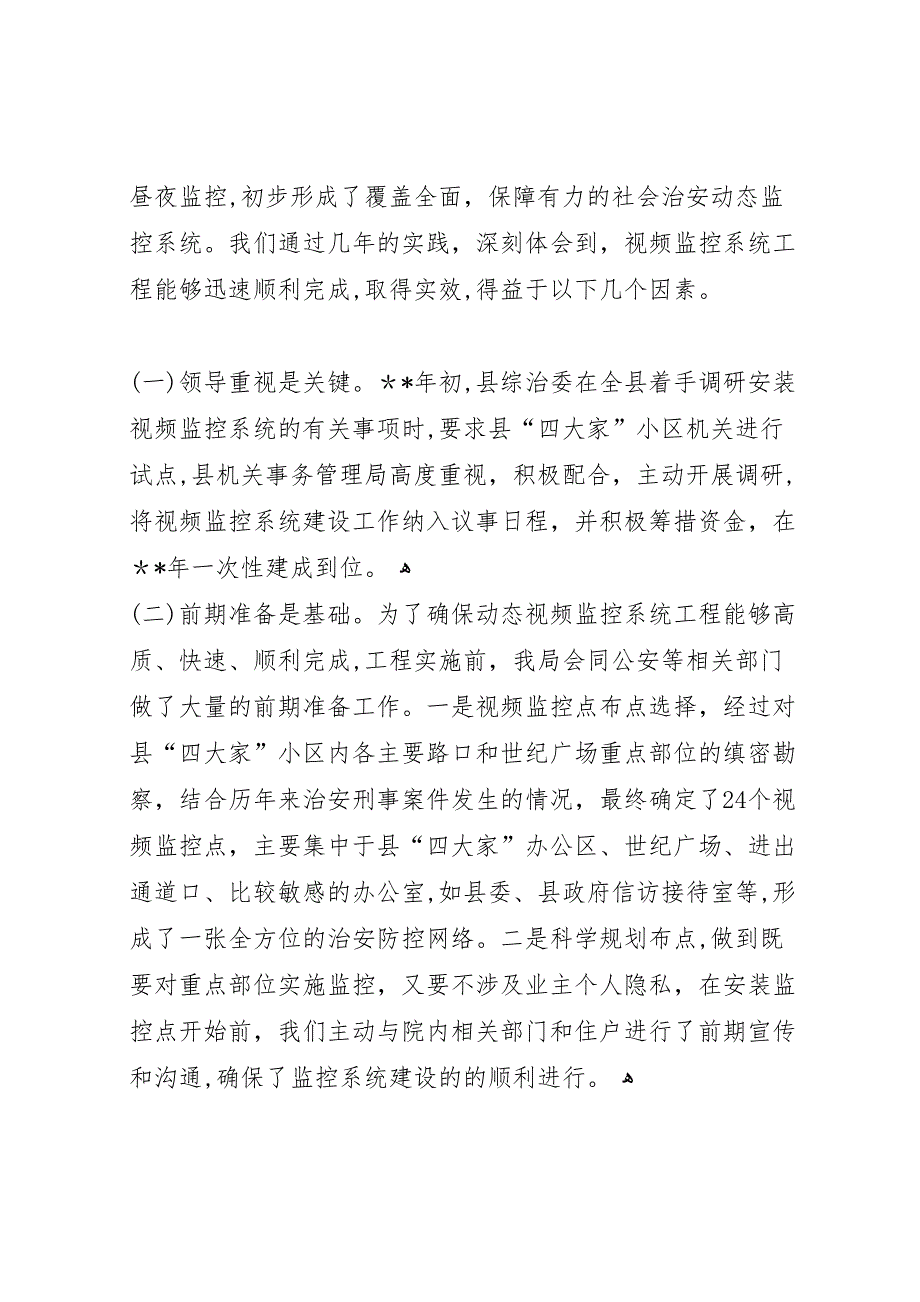 昼夜监控,初步形成了覆盖全面，保障有力的社会治安动态监
控系统。我们通过几年的实践，深刻体会到，视频监控系统工
程能够迅速顺利完成,取得实效,得益于以下几个因素。
(一)领导重视是关键。**年初,县综治委在全县着手调研安装
视频监控系统的有关事项时,要求县“四大家”小区机关进行
试点,县机关事务管理局高度重视，积极配合，主动开展调研,
将视频监控系统建设工作纳入议事日程，并积极筹措资金，在
**年一次性建成到位。 ﻫ
(二)前期准备是基础。为了确保动态视频监控系统工程能够高
质、快速、顺利完成,工程实施前，我局会同公安等相关部门
做了大量的前期准备工作。一是视频监控点布点选择，经过对
县“四大家”小区内各主要路口和世纪广场重点部位的缜密勘
察，结合历年来治安刑事案件发生的情况，最终确定了24个视
频监控点，主要集中于县“四大家”办公区、世纪广场、进出
通道口、比较敏感的办公室,如县委、县政府信访接待室等,形
成了一张全方位的治安防控网络。二是科学规划布点,做到既
要对重点部位实施监控，又要不涉及业主个人隐私，在安装监
控点开始前，我们主动与院内相关部门和住户进行了前期宣传
和沟通,确保了监控系统建设的的顺利进行。 ﻫ